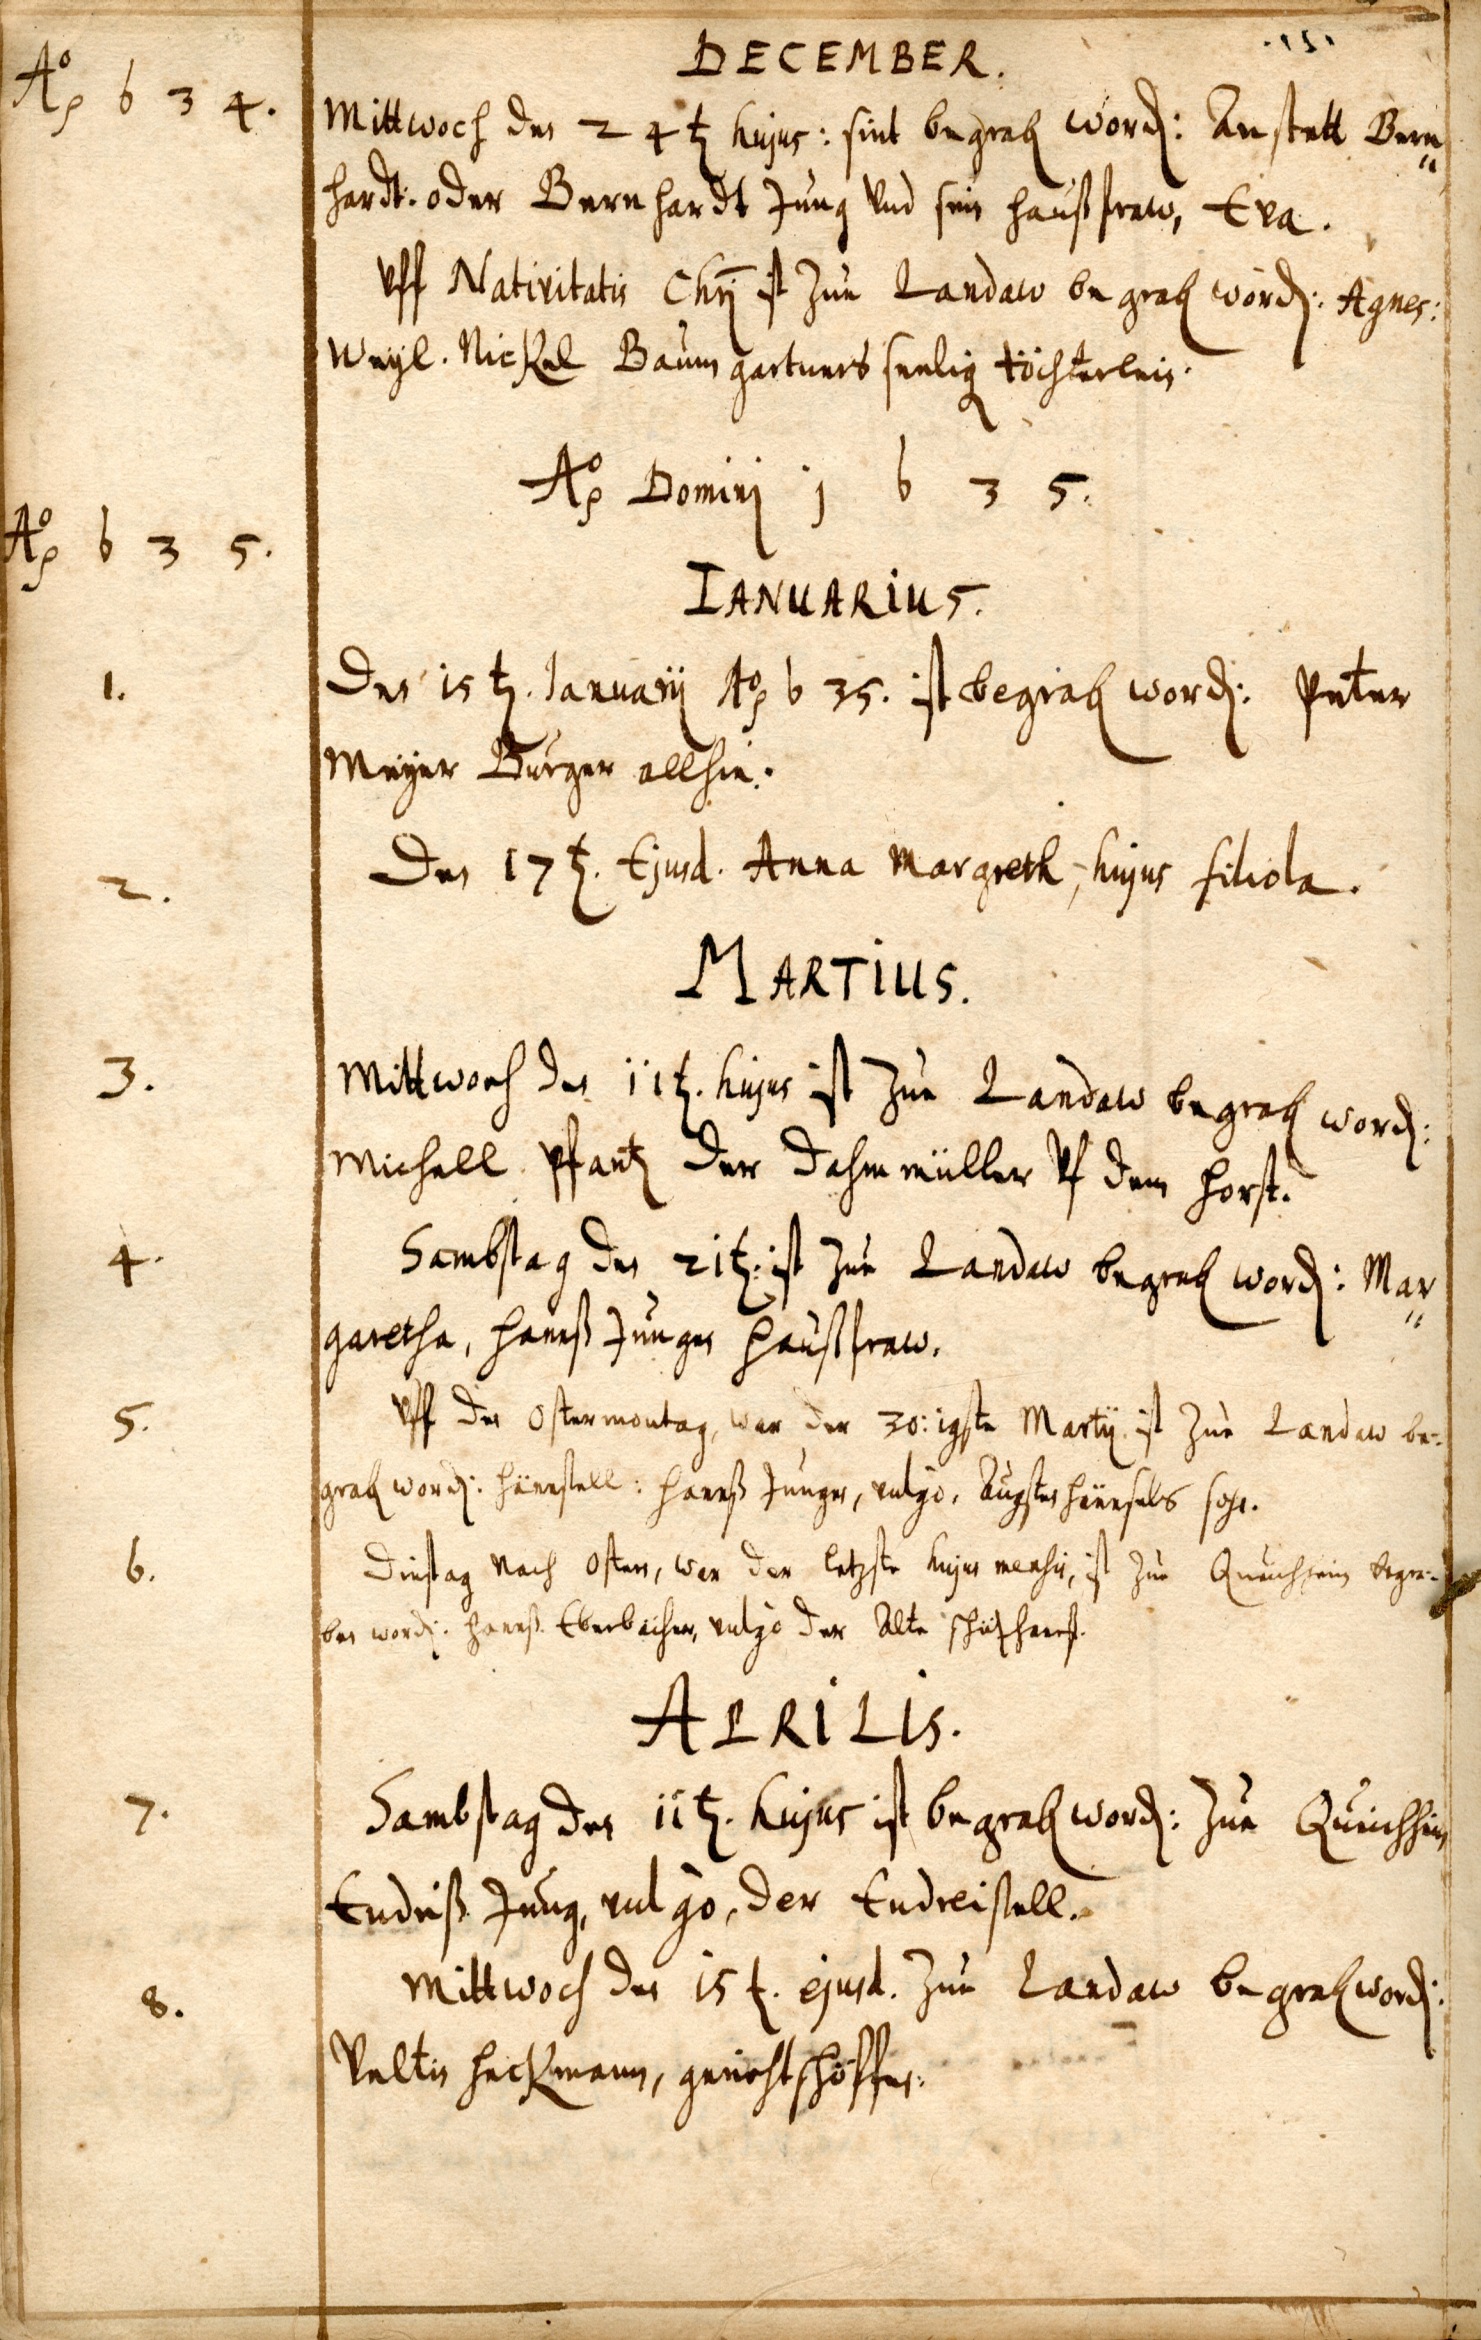 .151.
DECEMBER.
Ao 634.
Mittwoch den 24t hujus: sint begrab word: Anstett Bern„
hardt: oder Bernhardt Jung vnd sein haußfraw, Eva.
vff Nativitatis Chrj ist zue Landaw begrab word: Agnes:
Weyl. Nickel Baumgartners seelig töchterlein.
Ao Dominj j 6 3 5.
Ao 6 3 5.
IANUARIUS.
1. Den 15t. Januarij Ao 635. ist begrab word: Peter
Meyer Burger allhie.
2. Den 17t. Ejusd. Anna Margreth, hujus filiola.
MARTIUS.
3. Mittwoch den 11t. hujus ist zue Landaw begrab word:
Michell Pfantz der dahmmüller vf dem horst.
4. Sambstag den 21t. ist zue Landaw begrab word: Mar„
garetha, hannß Junges haußfraw.
5. Vff den Ostermontag, war der 30:igste Martij. ist zue Landaw be-
grab word: hännßell: hannß Junges, vulgo, Augstenhännsels sohn.
6. Dinstag nach Ostern, war der letzste hujus mensis, ist zue Queichheim begra-
ben word: hannß Eberbacher, vulgo der Alte
APRILIS.
7. Sambstag den 11t. hujus ist begrab word: zue Queichheim
Endriß Jung, vulgo, der Endreißell.
8. Mittwoch den 15t. ejusd. zue Landaw begrab word:
Veltin heckmann, gerichtschöffen.